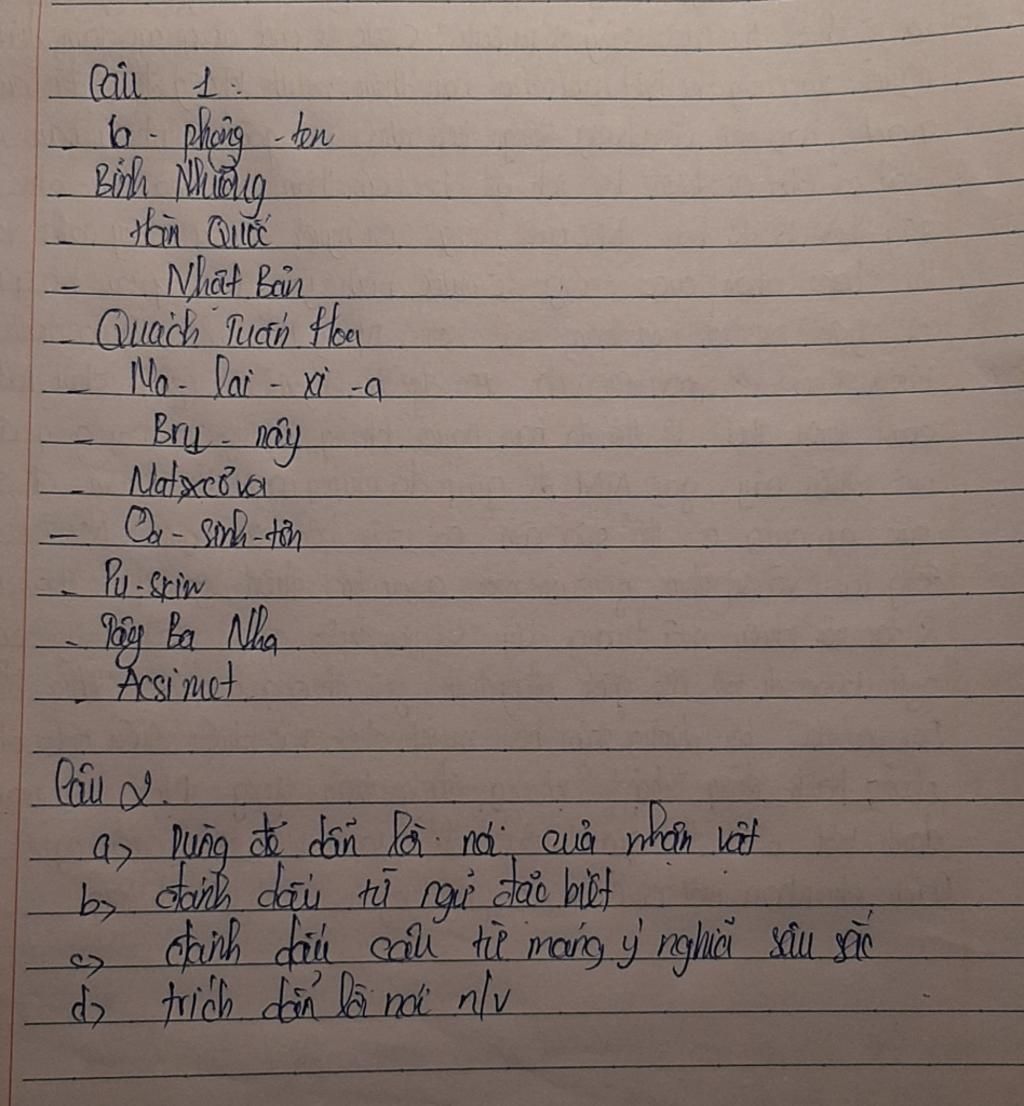 Câu 1:
- b - phông - ten
- Bình Nhưỡng
- Hàn Quốc
- Nhật Bản
- Quách Tuấn Hoa
- Ma - lai - xi - a
- Bru - nây
- Matxcơva
- Oa - sinh - tơn
- Pu - skin
- Tây Ba Nha
- Acsimet
Câu 2.
a> Dùng để dẫn lời nói của nhân vật
b> đánh dấu từ ngữ đặc biệt
c> đánh dấu câu từ mang ý nghĩa sâu sắc
d> trích dẫn lời nói n/v